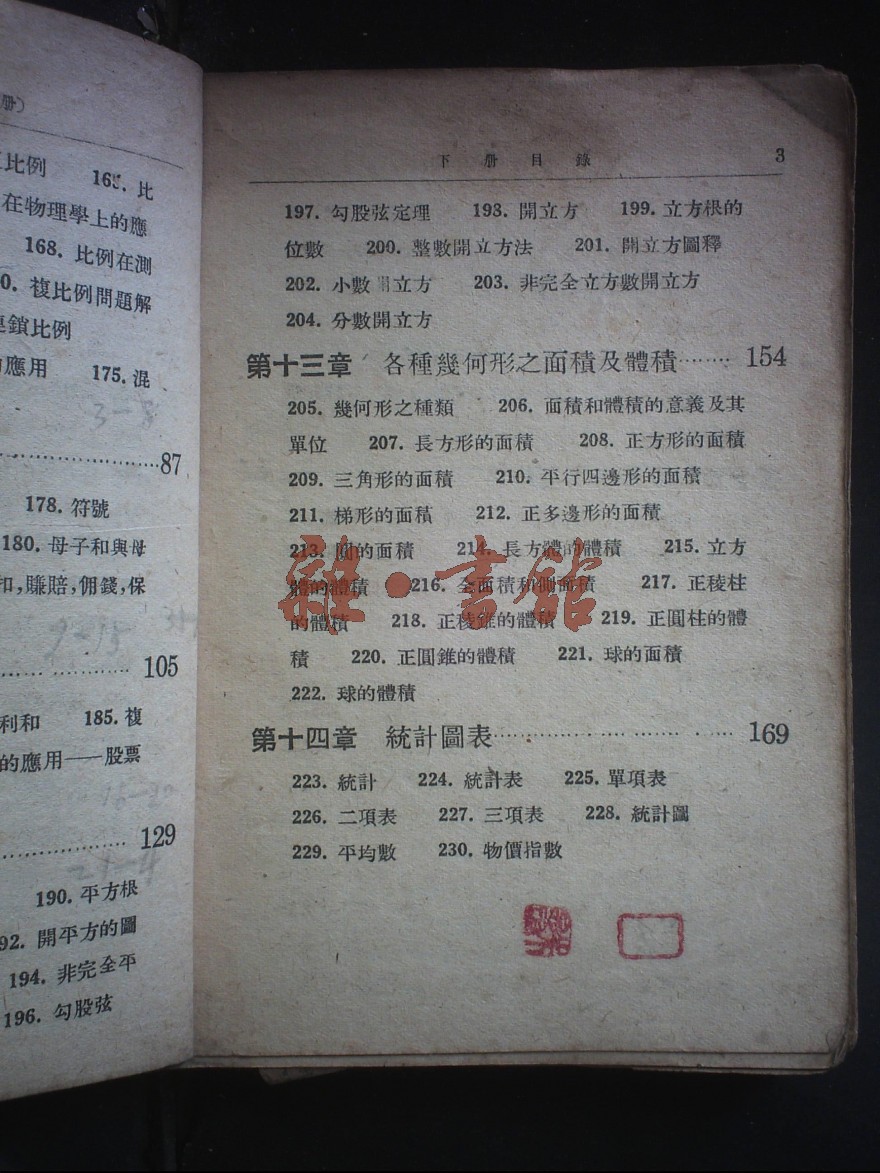 册)
比例 165. 比
在物理學上的應
168. 比例在測
0. 複比例問題解
鎖比例
應用 175. 混
3-8
87
178. 符號
180. 母子和與母
扣,賺賠,佣錢,保
105
利和 185. 複
的應用——股票
129
190. 平方根
92. 開平方的圖
194. 非完全平
196. 勾股弦
下册目錄 3
197. 勾股弦定理 198. 開立方 199. 立方根的
位數 200. 整數開立方法 201. 開立方圖釋
202. 小數開立方 203. 非完全立方數開立方
204. 分數開立方
第十三章 各種幾何形之面積及體積 154
205. 幾何形之種類 206. 面積和體積的意義及其
單位 207. 長方形的面積 208. 正方形的面積
209. 三角形的面積 210. 平行四邊形的面積
211. 梯形的面積 212. 正多邊形的面積
213. 圓的面積 214. 長方體的體積 215. 立方
體的體積 216. 全面積和側面積 217. 正稜柱
的體積 218. 正稜錐的體積 219. 正圓柱的體
積 220. 正圓錐的體積 221. 球的面積
222. 球的體積
第十四章 統計圖表 169
223. 統計 224. 統計表 225. 單項表
226. 二項表 227. 三項表 228. 統計圖
229. 平均數 230. 物價指數
雜·書館